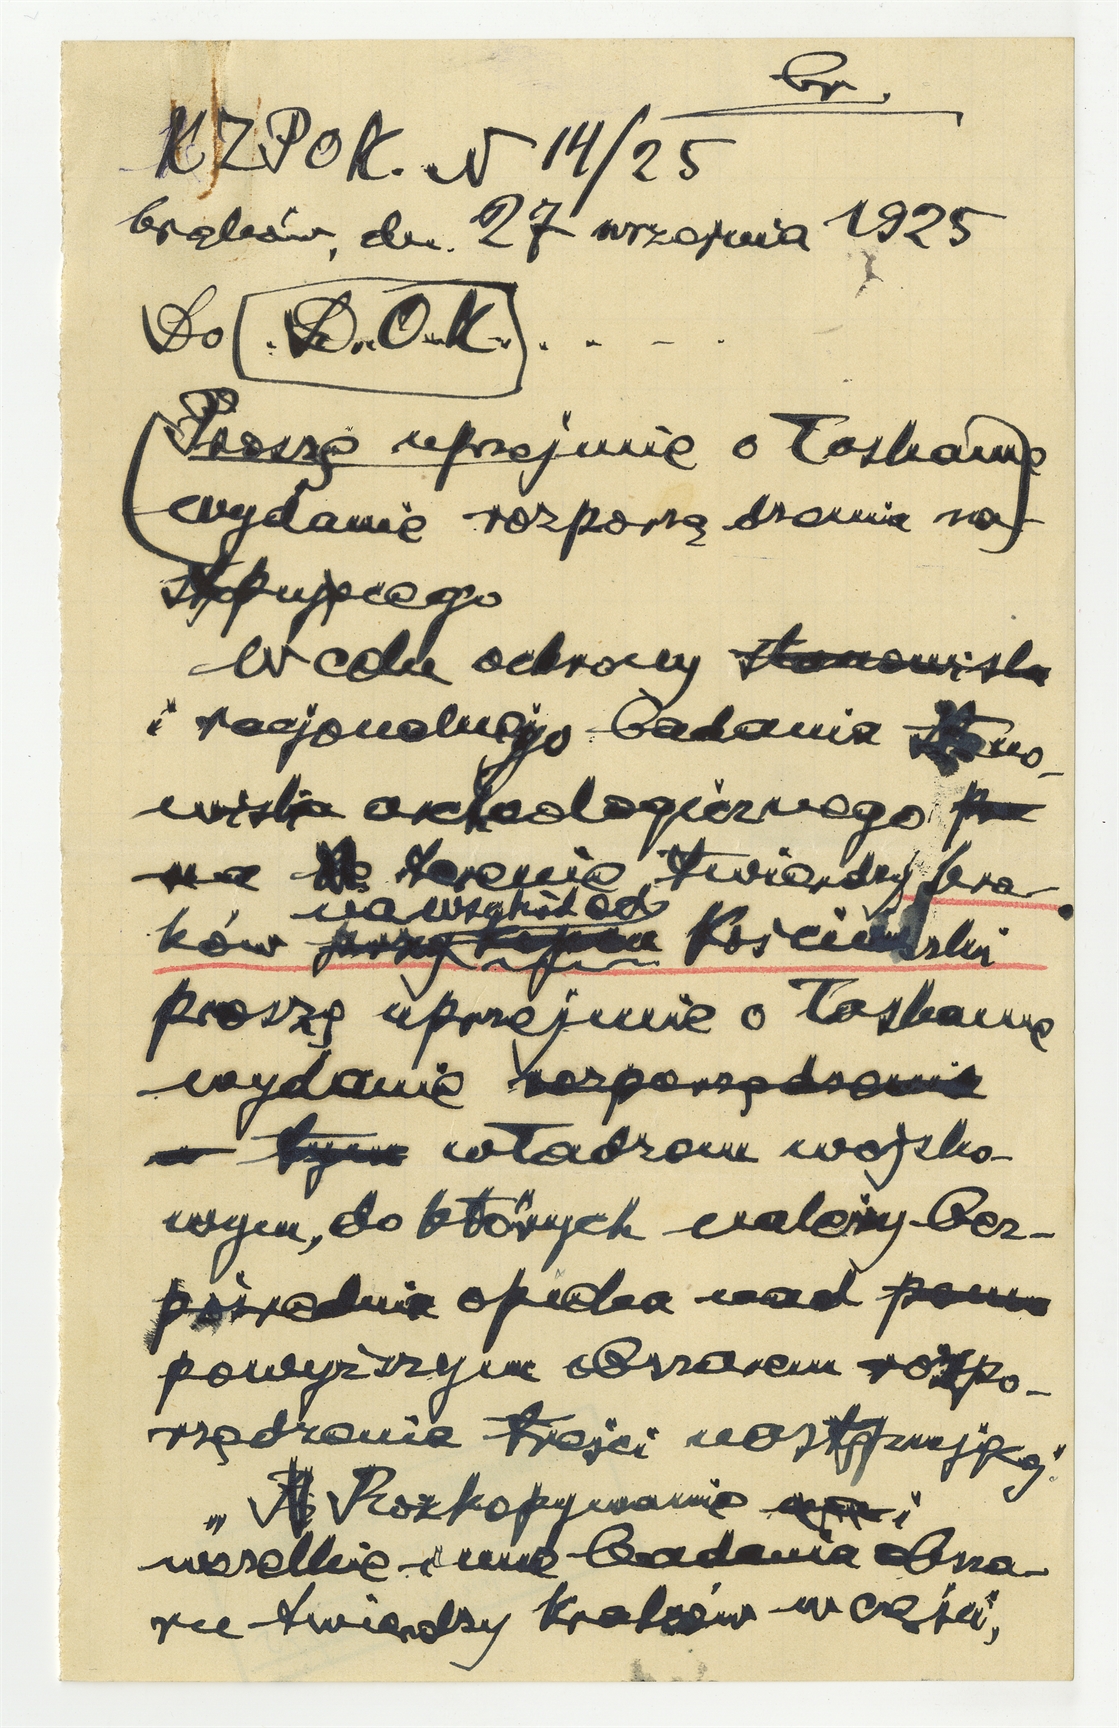 br.
KZPOK. N 14/25
Kraków, dn. 27 września 1925
Do (D.O.K.) . . . .
(Proszę uprzejmie o łaskawe
wydanie rozporządzenia na-)
stępującego
W celu ochrony stanowiska
i racjonalnego badania stano-
wiska archeologicznego
na terenie twierdzy Kra-
na wschód od
ków przy kopcu Kościuszki
proszę uprzejmie o łaskawe
wydanie rozporządzenia
tym władzom wojsko-
wym, do których należy bez-
pośrednia opieka nad
powyższym obszarem rozpo-
rządzenia treści następującej:
„Rozkopywanie i
wszelkie inne badania obsza-
ru twierdzy Kraków w części,